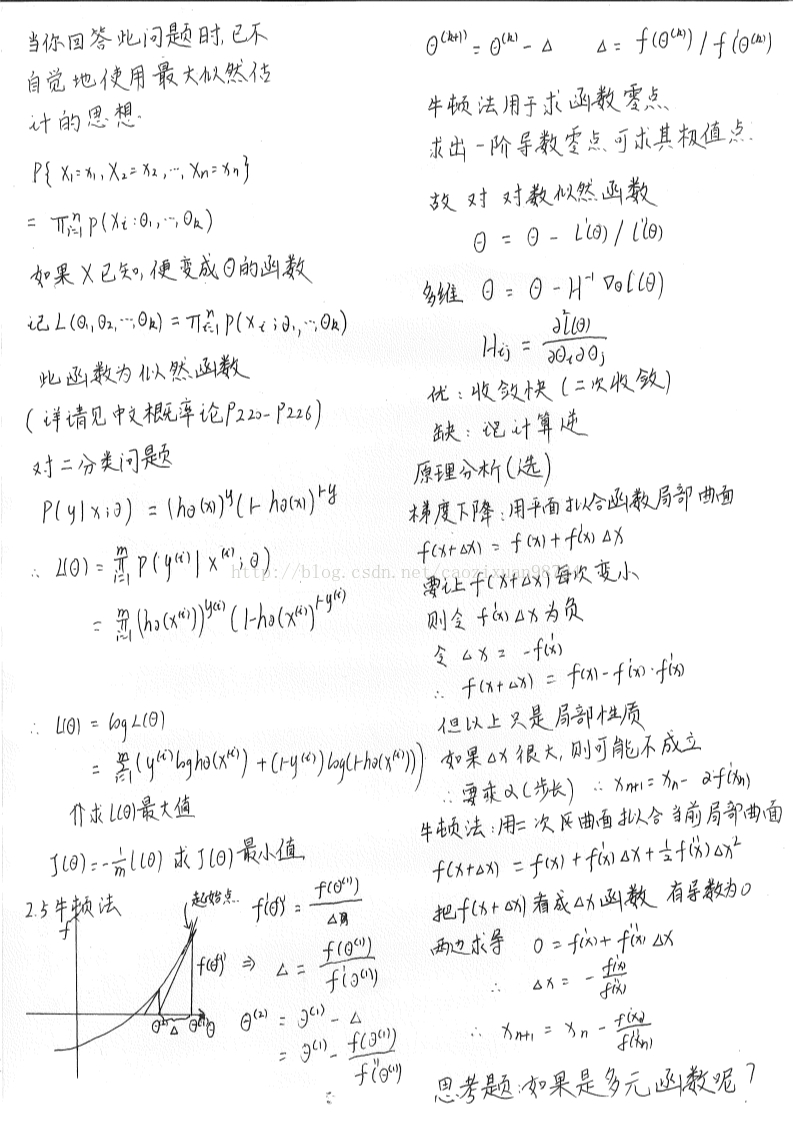 当你回答此问题时,已不
自觉地使用最大似然估
计的思想.
P{X₁=x₁, X₂=x₂, ..., Xn=xn}
= πⁿᵢ₌₁ p(xi; θ₁, ..., θk)
如果X已知,便变成θ的函数
记L(θ₁, θ₂, ..., θk) = πⁿᵢ₌₁ p(xi; θ₁, ..., θk)
此函数为似然函数
(详请见中文概率论P220-P226)
对二分类问题
P(y|x;θ) = (hθ(x))^y (1-hθ(x))^(1-y)
∴ L(θ) = π^m_(i=1) P(y^(i)|x^(i);θ)
= π^m_(i=1) (hθ(x^(i)))^y^(i) (1-hθ(x^(i)))^(1-y^(i))
∴ l(θ) = log L(θ)
= Σ^m_(i=1) (y^(i) log hθ(x^(i)) + (1-y^(i)) log(1-hθ(x^(i))))
求l(θ)最大值
J(θ) = -1/m l(θ) 求J(θ)最小值
2.5牛顿法
起始点
f
f(θ^(1))
θ^(2) Δ θ^(1) θ
f'(θ^(1)) = f(θ^(1))/Δ
⇒ Δ = f(θ^(1))/f'(θ^(1))
θ^(2) = θ^(1) - Δ
= θ^(1) - f(θ^(1))/f'(θ^(1))
θ^(k+1) = θ^(k) - Δ Δ = f(θ^(k))/f'(θ^(k))
牛顿法用于求函数零点
求出一阶导数零点可求其极值点
故对对数似然函数
θ = θ - l'(θ)/l''(θ)
多维 θ = θ - H⁻¹∇θl(θ)
Hij = ∂²l(θ)/∂θi∂θj
优:收敛快(二次收敛)
缺:计算逆
原理分析(选)
梯度下降:用平面拟合函数局部曲面
f(x+Δx) = f(x)+f'(x)Δx
http://blog.csdn.net/caozixuan98
要让f(x+Δx)每次变小
则令f'(x)Δx为负
令Δx = -f'(x)
∴ f(x+Δx) = f(x)-f'(x)·f'(x)
但以上只是局部性质
如果Δx很大,则可能不成立
∴要乘α(步长) ∴ xn+1=xn-αf'(xn)
牛顿法:用二次曲面拟合当前局部曲面
f(x+Δx) = f(x)+f'(x)Δx+½f''(x)Δx²
把f(x+Δx)看成Δx函数 有导数为0
两边求导 0=f'(x)+f''(x)Δx
∴ Δx = -f'(x)/f''(x)
∴ xn+1 = xn - f'(xn)/f''(xn)
思考题:如果是多元函数呢?